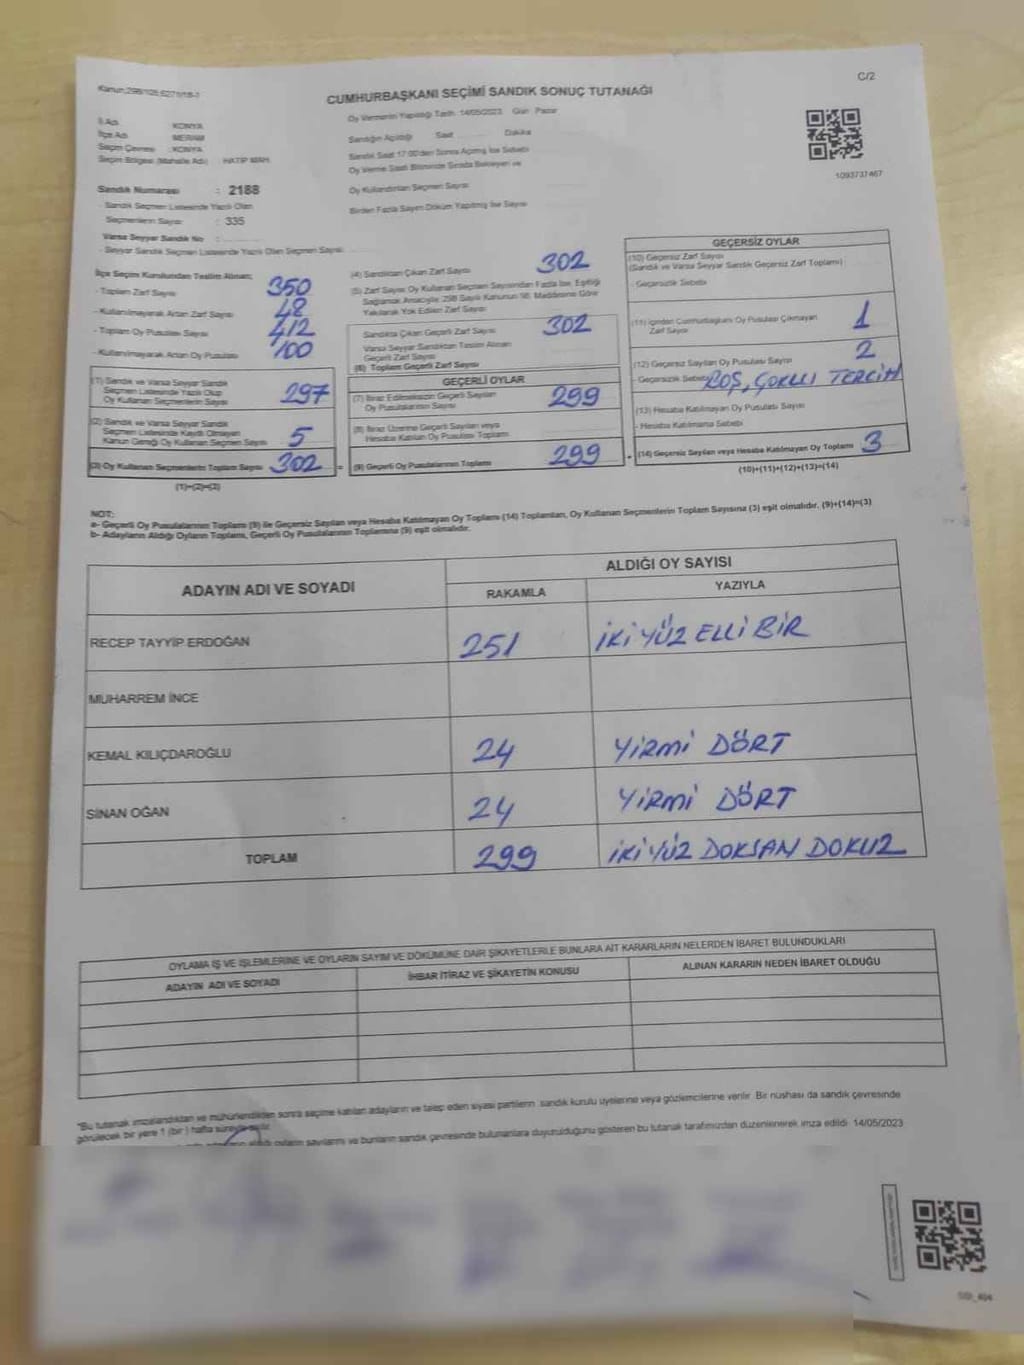 Kanun:298/105,6271/18-1
C/2
CUMHURBAŞKANI SEÇİMİ SANDIK SONUÇ TUTANAĞI
Oy Vermenin Yapıldığı Tarih: 14/05/2023 Gün: Pazar
İl Adı KONYA
İlçe Adı MERAM
Seçim Çevresi : KONYA
Seçim Bölgesi (Mahalle Adı) : HATIP MAH.
Sandığın Açıldığı Saat Dakika
Sandık Saat 17:00'den Sonra Açılmış İse Sebebi
Oy Verme Saati Bitiminde Sırada Bekleyen ve
Oy Kullandırılan Seçmen Sayısı
Birden Fazla Sayım Döküm Yapılmış İse Sayısı
1093737467
Sandık Numarası : 2188
- Sandık Seçmen Listesinde Yazılı Olan
Seçmenlerin Sayısı : 335
Varsa Seyyar Sandık No :
- Seyyar Sandık Seçmen Listesinde Yazılı Olan Seçmen Sayısı:
İlçe Seçim Kurulundan Teslim Alınan;
- Toplam Zarf Sayısı 350
- Kullanılmayarak Artan Zarf Sayısı 48
- Toplam Oy Pusulası Sayısı 412
- Kullanılmayarak Artan Oy Pusulası 100
(1) Sandık ve Varsa Seyyar Sandık
Seçmen Listesinde Yazılı Olup
Oy Kullanan Seçmenlerin Sayısı 297
(2) Sandık ve Varsa Seyyar Sandık
Seçmen Listesinde Kayıtlı Olmayan
Kanun Gereği Oy Kullanan Seçmen Sayısı 5
(3) Oy Kullanan Seçmenlerin Toplam Sayısı 302 =
(1)+(2)=(3)
(4) Sandıktan Çıkan Zarf Sayısı 302
(5) Zarf Sayısı Oy Kullanan Seçmen Sayısından Fazla İse, Eşitliği
Sağlamak Amacıyla; 298 Sayılı Kanunun 98. Maddesine Göre
Yakılarak Yok Edilen Zarf Sayısı
Sandıkta Çıkan Geçerli Zarf Sayısı 302
Varsa Seyyar Sandıktan Teslim Alınan
Geçerli Zarf Sayısı
(6) Toplam Geçerli Zarf Sayısı
GEÇERLİ OYLAR
(7) İtiraz Edilmeksizin Geçerli Sayılan
Oy Pusulalarının Sayısı 299
(8) İtiraz Üzerine Geçerli Sayılan veya
Hesaba Katılan Oy Pusulası Toplamı
(9) Geçerli Oy Pusulalarının Toplamı 299 +
GEÇERSİZ OYLAR
(10) Geçersiz Zarf Sayısı
(Sandık ve Varsa Seyyar Sandık Geçersiz Zarf Toplamı)
- Geçersizlik Sebebi
(11) İçinden Cumhurbaşkanı Oy Pusulası Çıkmayan
Zarf Sayısı 1
(12) Geçersiz Sayılan Oy Pusulası Sayısı 2
- Geçersizlik Sebebi BOŞ, ÇOKLU TERCİH
(13) Hesaba Katılmayan Oy Pusulası Sayısı
- Hesaba Katılmama Sebebi
(14) Geçersiz Sayılan veya Hesaba Katılmayan Oy Toplamı 3
(10)+(11)+(12)+(13)=(14)
NOT:
a- Geçerli Oy Pusulalarının Toplamı (9) ile Geçersiz Sayılan veya Hesaba Katılmayan Oy Toplamı (14) Toplamları, Oy Kullanan Seçmenlerin Toplam Sayısına (3) eşit olmalıdır. (9)+(14)=(3)
b- Adayların Aldığı Oyların Toplamı, Geçerli Oy Pusulalarının Toplamına (9) eşit olmalıdır.
ADAYIN ADI VE SOYADI
ALDIĞI OY SAYISI
RAKAMLA YAZIYLA
RECEP TAYYİP ERDOĞAN 251 İKİ YÜZ ELLİ BİR
MUHARREM İNCE
KEMAL KILIÇDAROĞLU 24 YİRMİ DÖRT
SİNAN OĞAN 24 YİRMİ DÖRT
TOPLAM 299 İKİ YÜZ DOKSAN DOKUZ
OYLAMA İŞ VE İŞLEMLERİNE VE OYLARIN SAYIM VE DÖKÜMÜNE DAİR ŞİKAYETLERLE BUNLARA AİT KARARLARIN NELERDEN İBARET BULUNDUKLARI
ADAYIN ADI VE SOYADI İHBAR İTİRAZ VE ŞİKAYETİN KONUSU ALINAN KARARIN NEDEN İBARET OLDUĞU
"Bu tutanak imzalandıktan ve mühürlendikten sonra seçime katılan adayların ve talep eden siyasi partilerin sandık kurulu üyelerine veya gözlemcilerine verilir. Bir nüshası da sandık çevresinde
görülecek bir yere 1 (bir) hafta süreyle asılır.
aldığı oyların sayılarını ve bunların sandık çevresinde bulunanlara duyurulduğunu gösteren bu tutanak tarafımızdan düzenlenerek imza edildi. 14/05/2023